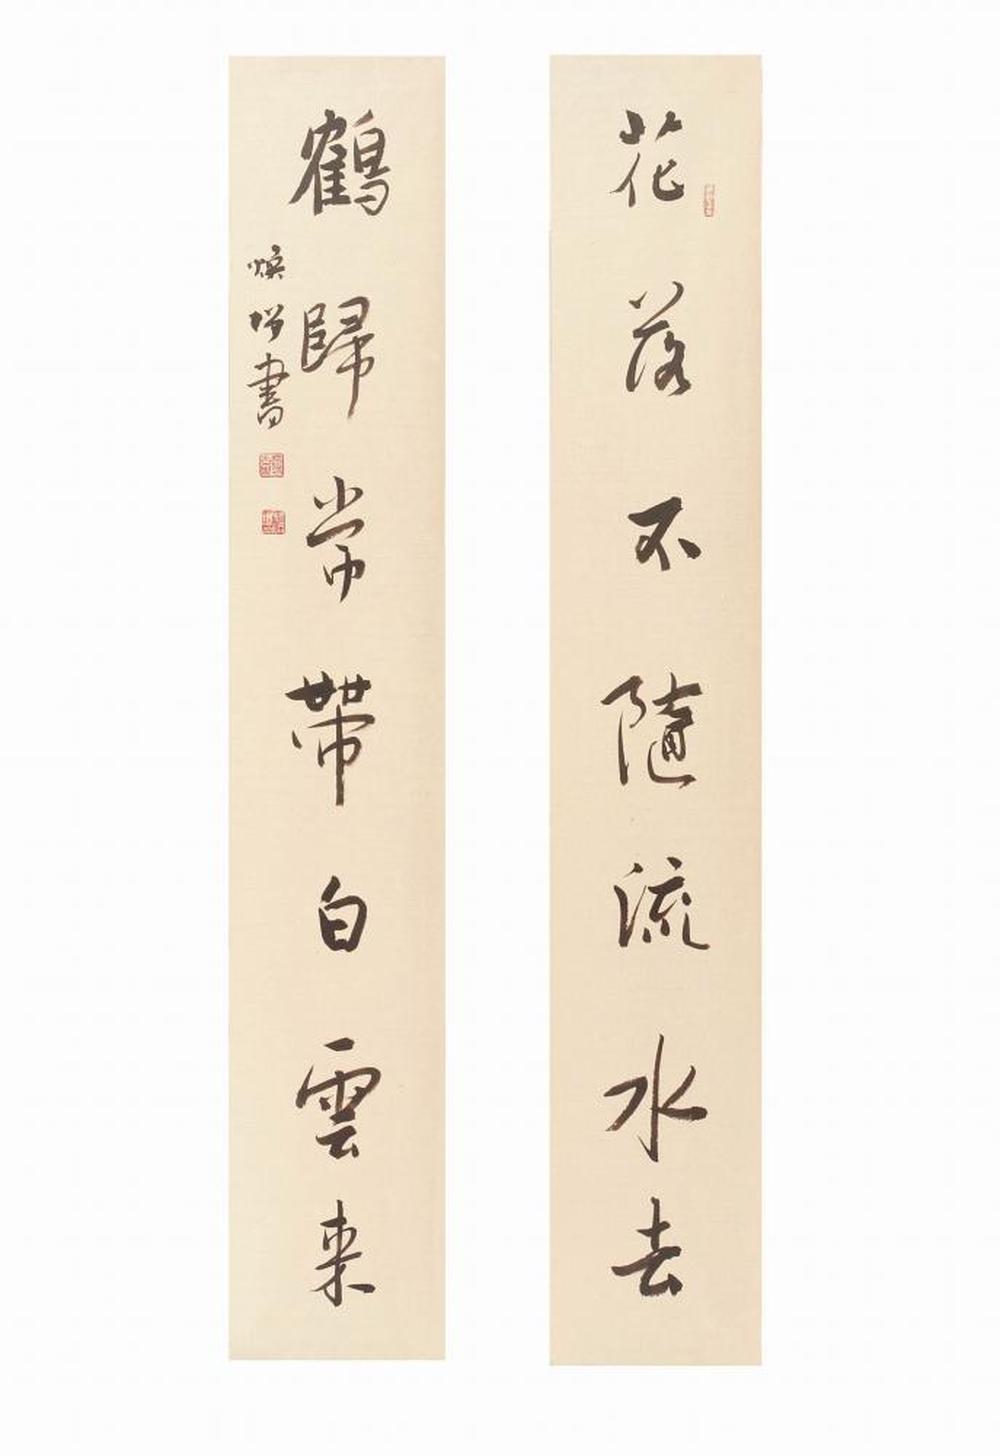 花落不隨流水去
鶴歸常帶白雲来
煥
書